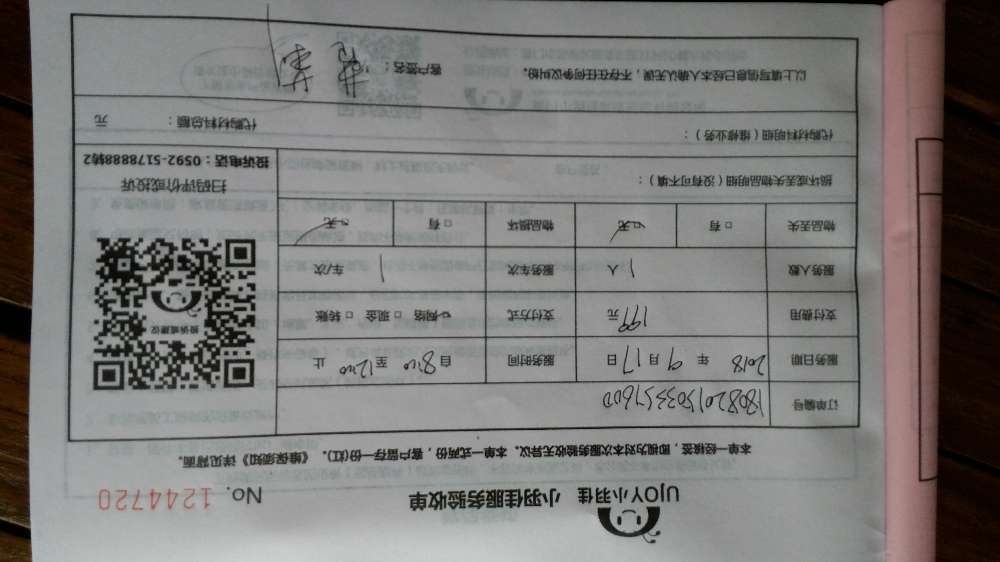 UJOY小羽佳 小羽佳服务验收单
No. 1244720
本单一经核签，即视为对本次服务验收无异议。本单一式两份，客户留存一份(红)。《维保须知》详见背面。
订单编号
服务日期 2018 年 9 月 17 日 服务时间 自 8:00 至 12:00 止
支付费用 199 元 支付方式 网络 □ 现金 □ 转账
服务人数 1 人 服务车次 1 车次
物品丢失 □ 有 □ 无 物品损坏 □ 有 □ 无
投诉或建议
扫码评价或投诉
投诉电话：0592-5178888转2
损坏或丢失物品明细（没有可不填）：
代购材料明细（维修业务）：
代购材料总额： 元
以上填写信息已经本人确认无误，不存在任何争议纠纷。 客户签名：